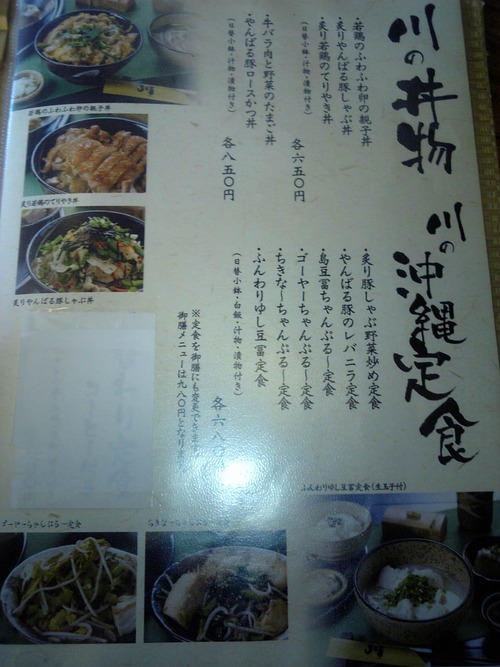 川の丼物
・若鶏のふわふわ卵の親子丼
・炙りやんばる豚しゃぶ丼
・炙り若鶏のてりやき丼
(日替小鉢・汁物・漬物付き)
各六五〇円
・牛バラ肉と野菜のたまご丼
・やんばる豚ロースかつ丼
(日替小鉢・汁物・漬物付き)
各八五〇円
川の沖縄定食
・炙り豚しゃぶ野菜炒め定食
・やんばる豚のレバニラ定食
・島豆冨ちゃんぷる〜定食
・ゴーヤーちゃんぷる〜定食
・ちきな〜ちゃんぷる〜定食
・ふんわりゆし豆冨定食
(日替小鉢・白飯・汁物・漬物付き)
各六八〇円
※定食を御膳にも変更できます。
御膳メニューは九八〇円となります。
若鶏のふわふわ卵の親子丼
炙り若鶏のてりやき丼
炙りやんばる豚しゃぶ丼
ふんわりゆし豆冨定食(生玉子付)